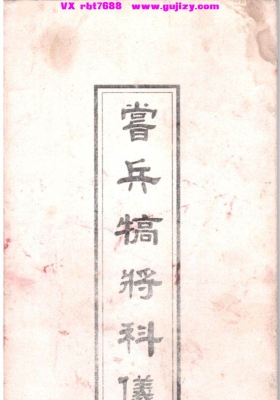 VX rbt7688 www.gujizy.com
嘗兵犒將科儀